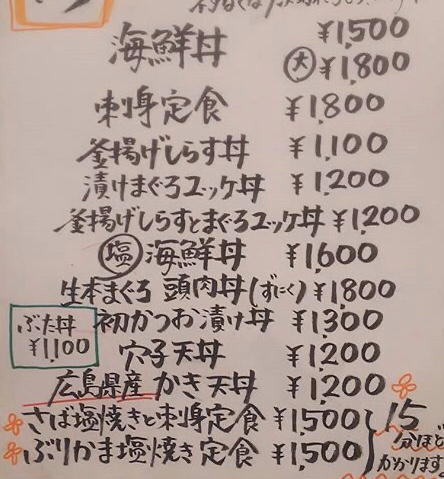 海鮮丼 ¥1500
大 ¥1,800
刺身定食 ¥1,800
釜揚げしらす丼 ¥1,100
漬けまぐろユッケ丼 ¥1,200
釜揚げしらすとまぐろユッケ丼 ¥1,200
塩 海鮮丼 ¥1,600
生本まぐろ 頭肉丼(ずにく) ¥1,800
初かつお漬け丼 ¥1,300
ぶた丼
¥1,100
穴子天丼 ¥1,200
広島県産 かき天丼 ¥1,200
さば塩焼きと刺身定食 ¥1,500
ぶりかま塩焼き定食 ¥1,500
15
分ほど
かかります。